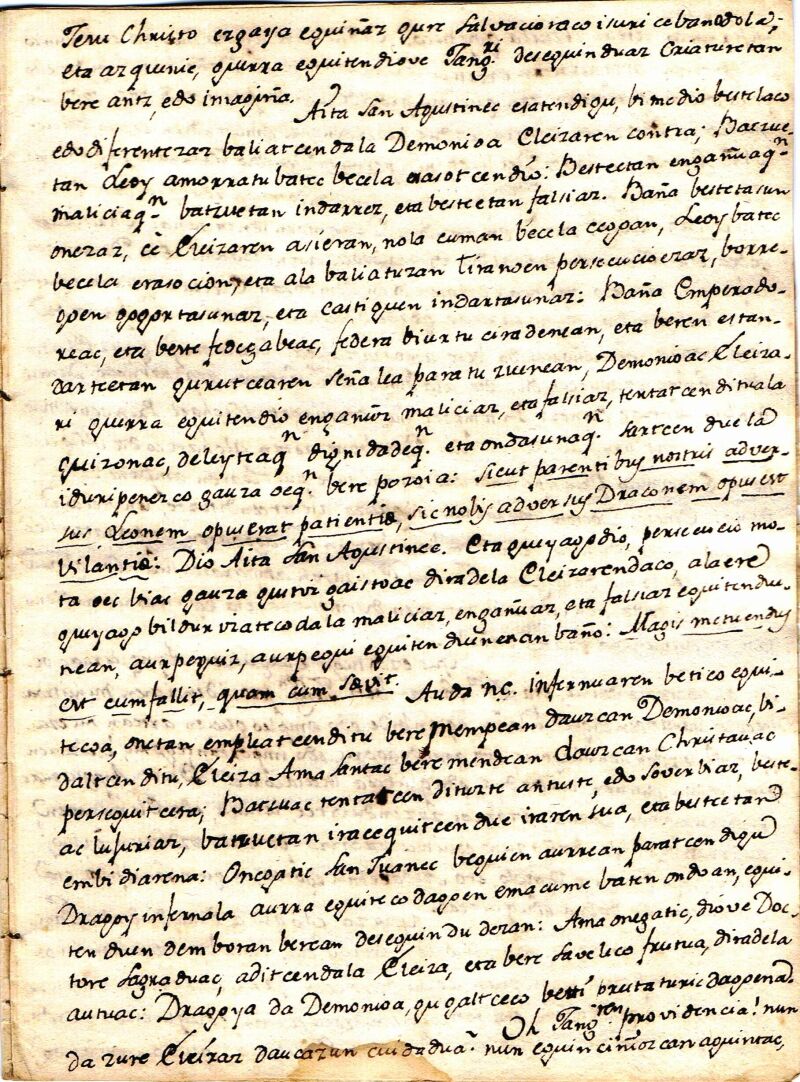 Jesu Christo ergaya eguiñaz gure salvacioraco isuri ceban odola;
eta azquenic, guerra eguitendiove Tang.ri deseguinduaz criaturetan
bere antz, edo imagiña.
Aita San Agustinec esatendigu, bi medio bestelaco
edo diferentezaz baliatcendala Demonioa Eleizaren contra; Batzue-
tan Leoy amorratu batec becela erasotcendio: Bestectan engañuaq.n
maliciaq.n batzuetan indarrez, eta besteetan falsiaz. Baña bestetasun
onezaz, ce Eleizaren asieran, nola euman becela cegoan, Leoy batec
becela erasocion, eta ala baliatuzan Tiranoen persecucioezaz, borre-
goen gogortasunaz, eta castiguen indartasunaz: Baña Emperado-
reac, eta beste fedegabeac, federa biurtu ciradenean, eta beren estan-
darteetan gurutcearen señalea paratu zuenean, Demonioac Eleiza-
ri guerra eguitendio engañuz maliciaz, eta falsiaz, tentatcendituala
guizonac, deleyteaq.n dignidadeq.n eta ondasunaq.n sartcen duela
iduripenezco gauza oeq.n bere pozoia: sicut parentibus nostris adver-
sus Leonem opus erat patientiæ, sic nobis adversus Draconem opus est
vilantiæ: Dio Aita San Agustinec. Eta gueyago dio, persecucio mo-
ta oec biac gauza guztiz gaistoac diradela Eleizarendaco, ala ere
gueyago bildur izatecodala maliciaz, engañuaz, eta falsiaz eguitendue-
nean, aurpeguiz, aurpegui eguiten diunenean baño: Magis metuendus
est cum fallit, quam cum sævit.
Au da nc. infernuaren betico egui-
tecoa, onetan empleatcenditu bere mempean dauzcan Demonioac, bi-
daltcenditu, Eleiza Ama Santac bere mendean dauzcan Christavac
persequitcera; Batzuac tentatcen dituzte antuste, edo soverbiaz, beste-
ac lujuriaz, batzuetan iracequitcen due iraren sua, eta besteetan
embidiarena: Onegatic San Juanec beguien aurrean paratcendigu
Dragoy infernala aurra eguitecodagoen emacume baten ondoan, egui-
ten duen demboran berean deseguindu dezan: Ama onegatic, diove Doc-
tore sagraduac, aditcendala Eleiza, eta bere saveleco frutua, diradela
autuac: Dragoya da Demonioa, gu galtceco beti prutaturic dagoena.
Oh Tang.ren providencia! nun
da zure Eleizaz daucazun cuidadua! nun eguin cinozcan aguintac,